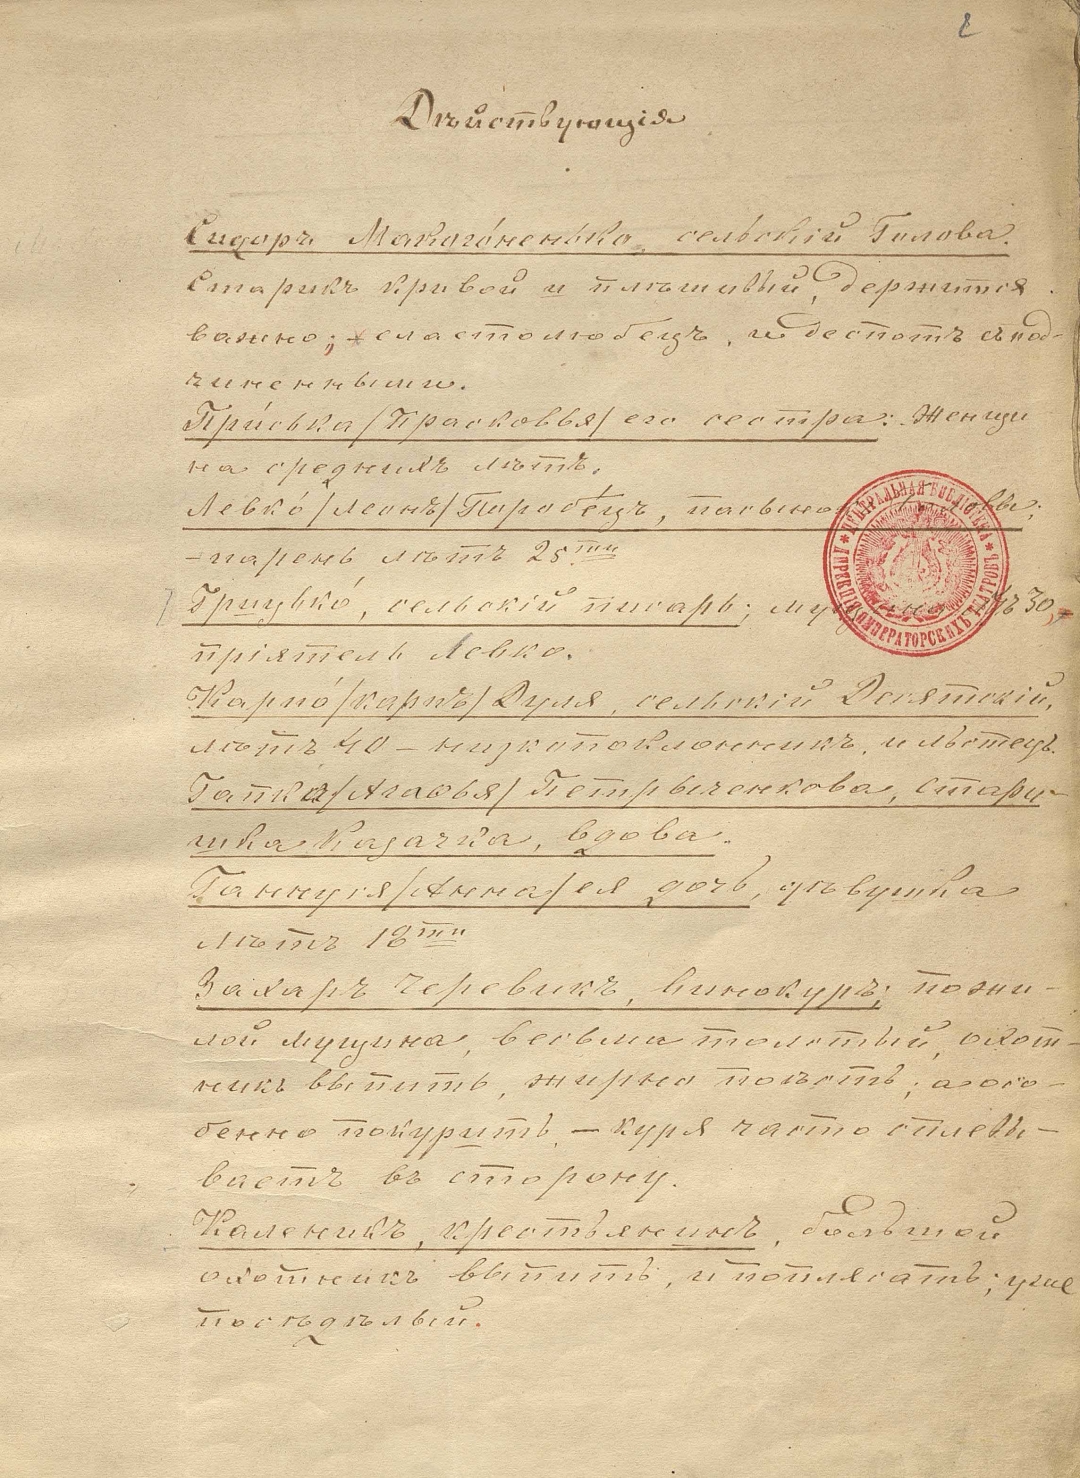 2
Дѣйствующія
Сидоръ Макого́ненько, сельскій Голова.
Старикъ кривой и плѣшивый, держится
важно; сластолюбецъ, и деспотъ съ под-
чиненными.
При́ська /Прасковья/ его сестра: Женщи
на среднихъ лѣтъ.
Левко́ /Леонъ/ Паробецъ, пасынокъ Головы;
парень лѣтъ 25ти
Грицько́, сельскій писарь; мущина лѣтъ 30,
пріятель Левко.
Карпо́ /карпъ/ Дуля, сельскій Десятскій,
лѣтъ 40 – низкопоклонникъ, и льстецъ.
Гапка /Агафья/ Петрыченкова, стару-
шка Казачка, вдова.
Ганнуся /Анна/ ея дочь, дѣвушка
лѣтъ 18ти
Захаръ Черевикъ, винокуръ; пожи-
лой мущина, весьма толстый, охот-
никъ выпить, жирно поѣсть; а осо-
бенно покурить, – куря часто сплевы-
ваетъ въ сторону.
Каленикъ, крестьянинъ, большой
охотникъ выпить, и поплясать; уже
посѣдѣлый.
ЦЕНТРАЛЬНАЯ БИБЛІОТЕКА
ДИРЕКЦІИ ИМПЕРАТОРСКИХЪ ТЕАТРОВЪ